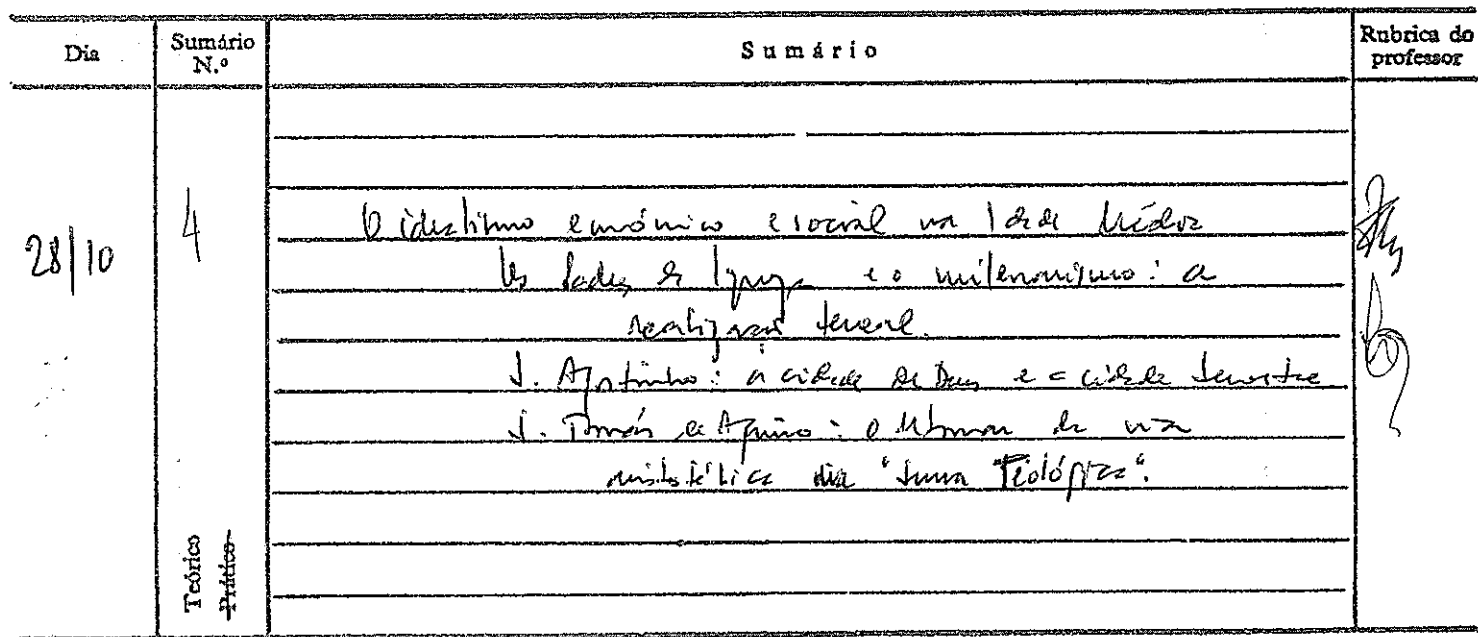 Dia
Sumário N.º
Sumário
Rubrica do professor
28/10
4
O idealismo económico e social na Idade Média
Os Padres da Igreja e o milenarismo: a
realização terreal.
S. Agostinho: a cidade de Deus e a cidade terrestre
S. Tomás de Aquino: o da via
aristotélica na "Suma Teológica".
Teórico
Prático